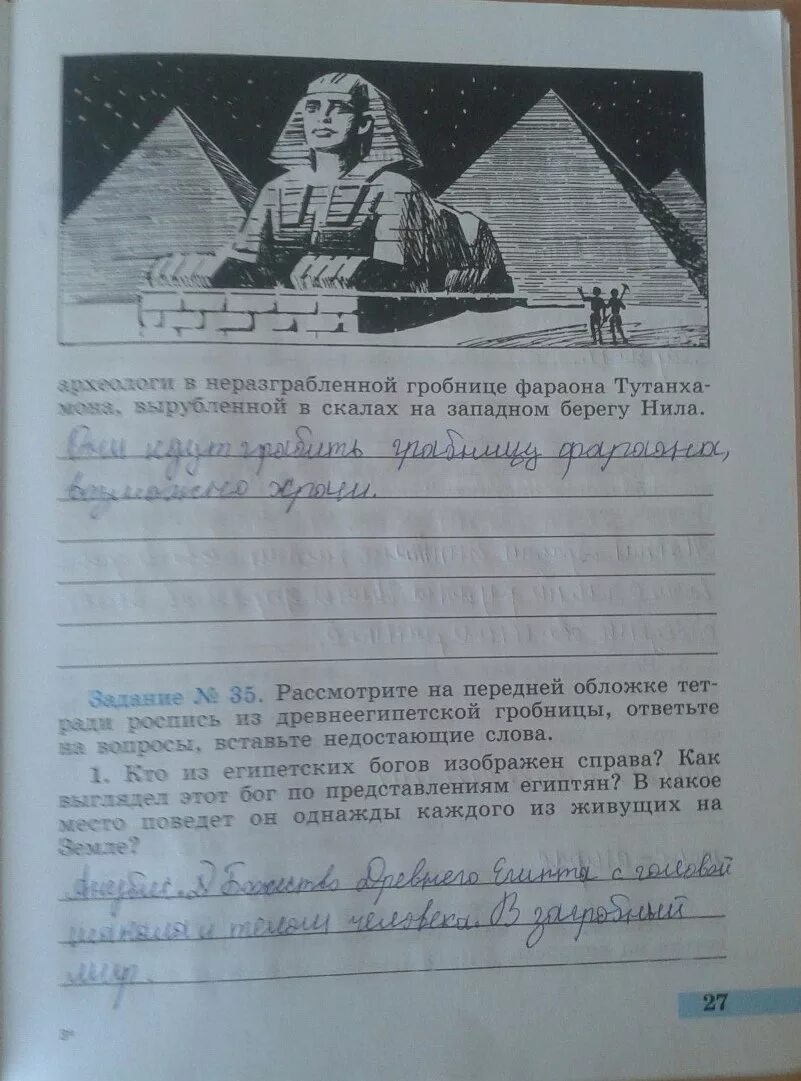 археологи в неразграбленной гробнице фараона Тутанха-
мона, вырубленной в скалах на западном берегу Нила.
Они идут грабить грабницу фараона,
возможно Хуфу.
Задание № 35. Рассмотрите на передней обложке тет-
ради роспись из древнеегипетской гробницы, ответьте
на вопросы, вставьте недостающие слова.
1. Кто из египетских богов изображен справа? Как
выглядел этот бог по представлениям египтян? В какое
место поведет он однажды каждого из живущих на
Земле?
Анубис. Божество Древнего Египта с головой
шакала и телом человека. В загробный
мир.
27